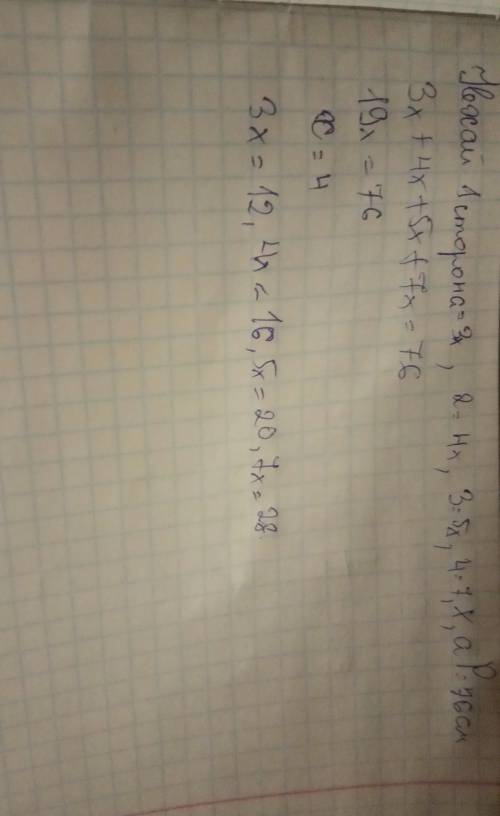 Нехай 1 сторона = 3x, 2 = 4x, 3 = 5x, 4 = 7x, а P = 76 см
3x + 4x + 5x + 7x = 76
19x = 76
x = 4
3x = 12, 4x = 16, 5x = 20, 7x = 28